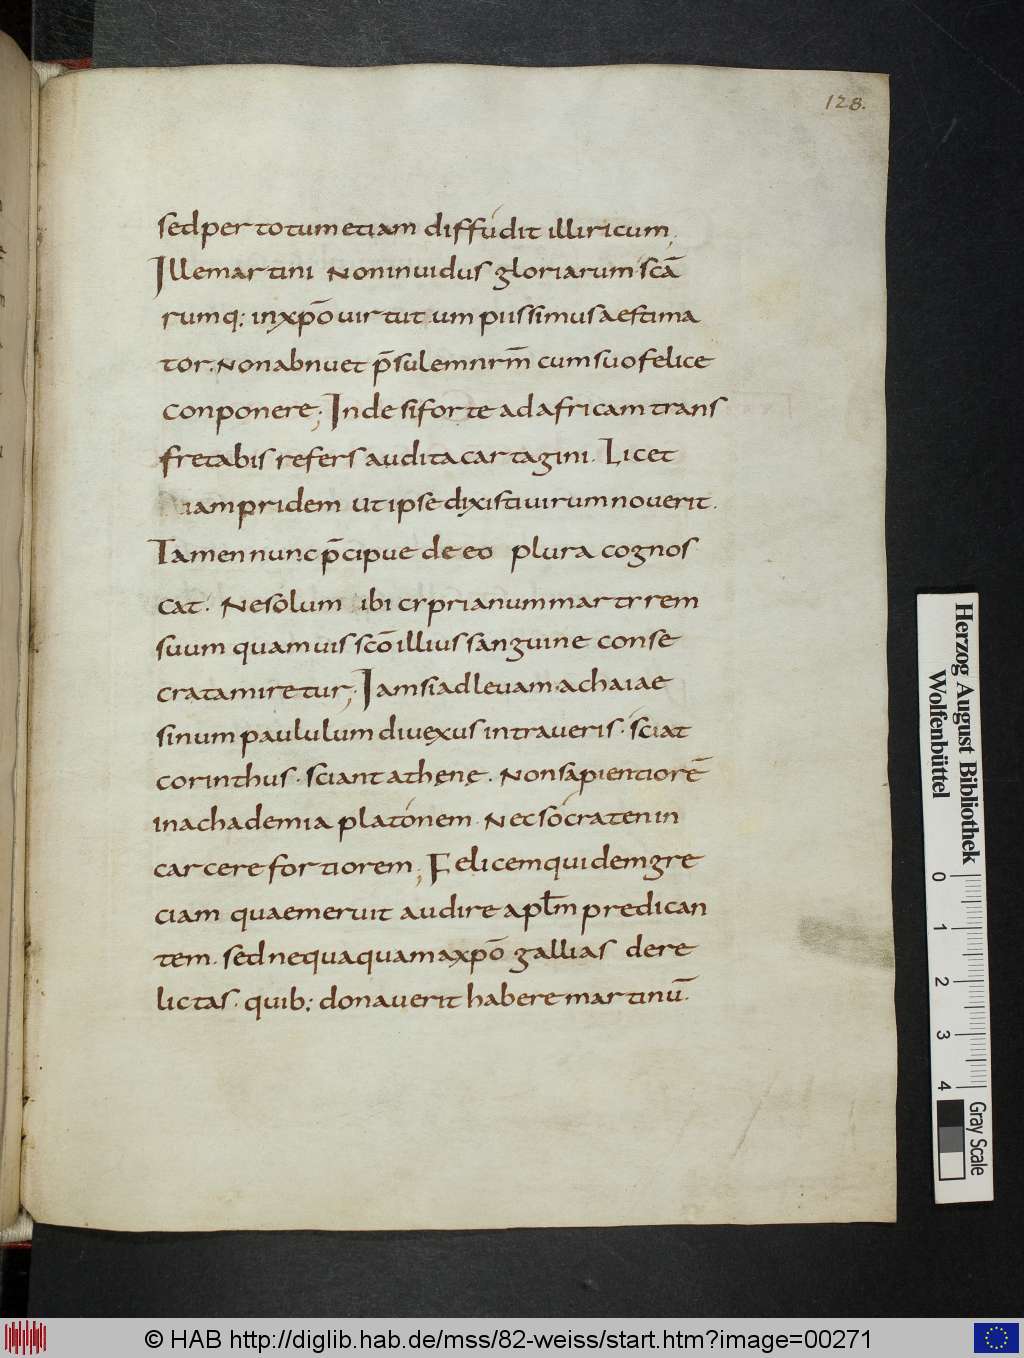 128.
sed per totum etiam diffudit illiricum;
Ille martini Non inuidus gloriarum scā
rumq; in xp̄o uirtutum piissimus aestima
tor. Non abnuet p̄sulem nrm̄ cum suo felice
conponere; Inde si forte ad africam trans
fretabis refers audita cartagini. Licet
iam pridem ut ipse dixisti uirum nouerit.
Tamen nunc p̄cipue de eo plura cognos
cat. Ne solum ibi cyprianum martyrem
suum quamuis scō illius sanguine conse
crata miretur; Iam si ad leuam achaiae
sinum paululum diuexus intraueris. sciat
corinthus. sciant athenę. Non sapientiorē
in achademia platonem. Nec socraten in
carcere fortiorem; Felicem quidem gre
ciam quae meruit audire apl̄m predican
tem. sed nequaquam a xp̄o gallias dere
lictas. quib; donauerit habere martinū.
Herzog August Bibliothek
Wolfenbüttel
0 1 2 3 4
Gray Scale
© HAB http://diglib.hab.de/mss/82-weiss/start.htm?image=00271